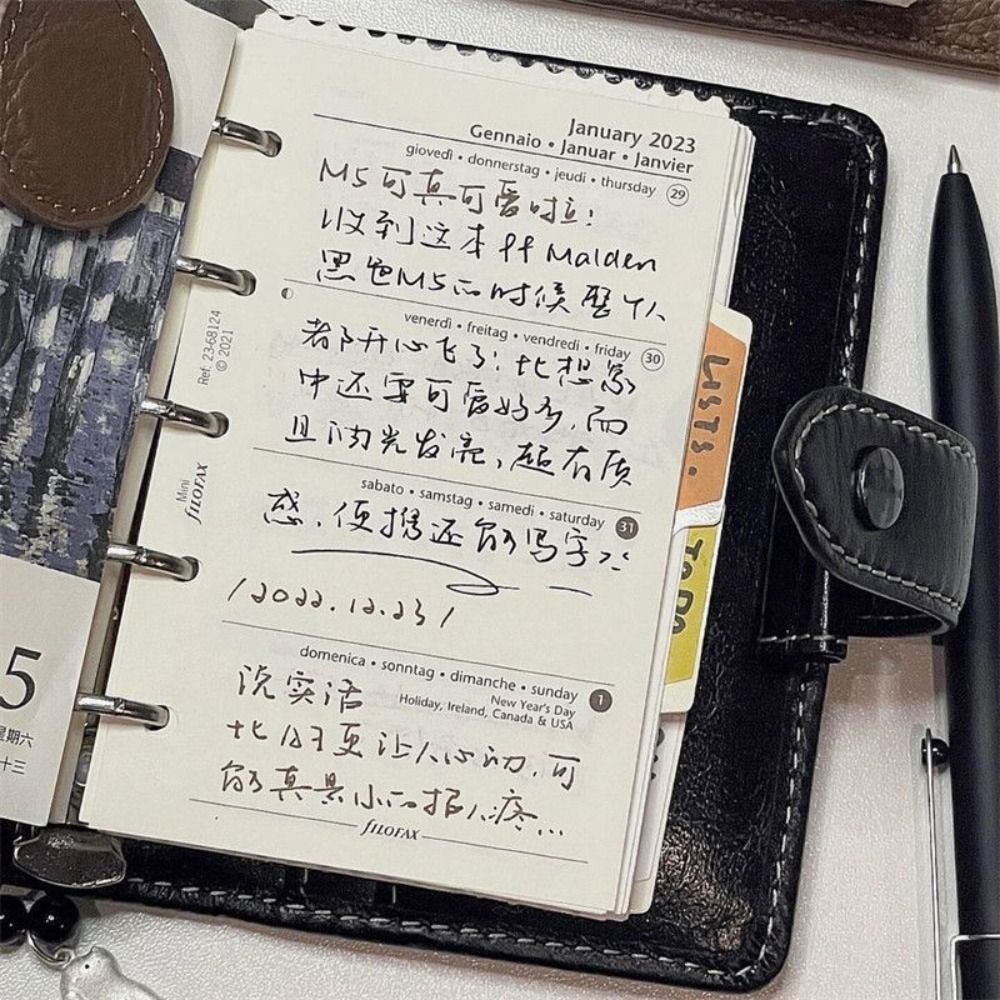 January 2023
Gennaio • Januar • Janvier
giovedì • donnerstag • jeudi • thursday 29
M5可真可爱啦!
收到这本ff Malden
黑色M5的时候整个人
venerdì • freitag • vendredi • friday 30
都开心飞了!比想象
中还要可爱好多,而
且闪光发亮,超有质
sabato • samstag • samedi • saturday 31
感,便携还能写字
/2022.12.23/
domenica • sonntag • dimanche • sunday 1
New Year's Day
Holiday, Ireland, Canada & USA
说实话
比A7更让人心动,可
能真是小的招人疼...
fILOFAX
Ref: 23-68124
© 2021
Mini
fILOFAX
LISTS.
TO DO
5
星期六
十三